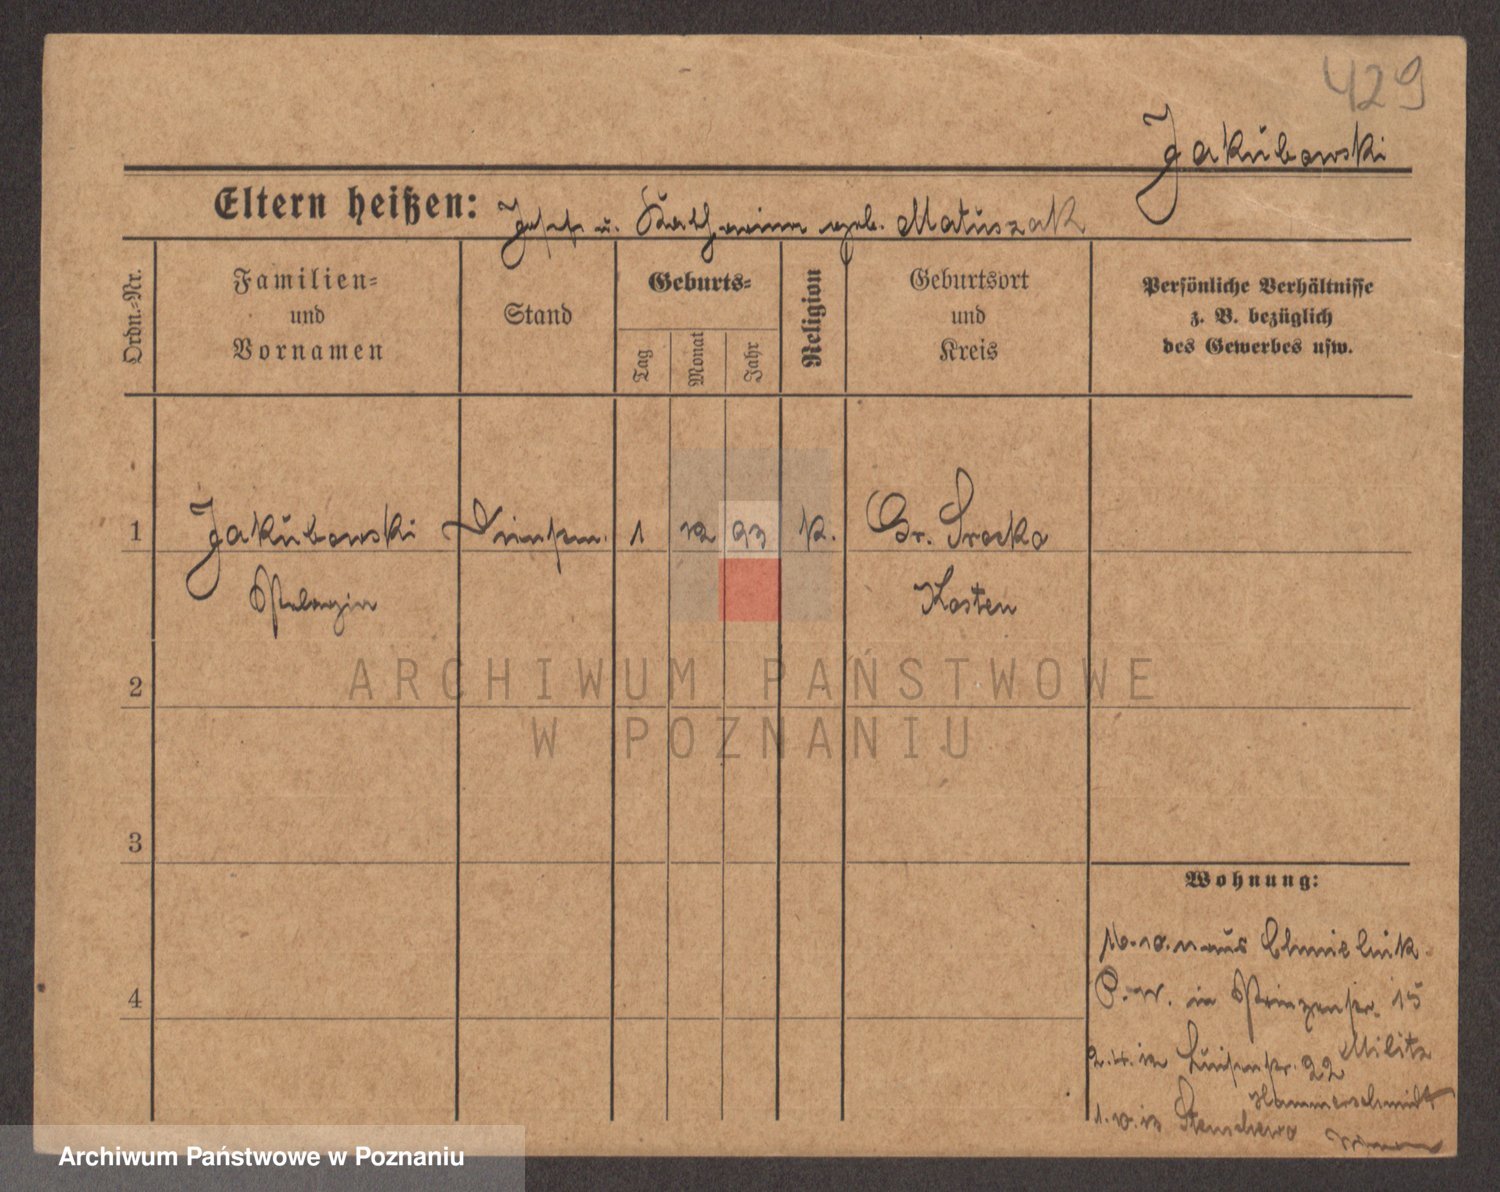 429
Jakubowski
Eltern heißen: Josef u. Katharina geb. Matuszak
Ordn.-Nr.
Familien-
und
Vornamen
Stand
Geburts-
Tag
Monat
Jahr
Religion
Geburtsort
und
Kreis
Persönliche Verhältnisse
z. B. bezüglich
des Gewerbes usw.
1 Jakubowski 1 12 93 k. Gr. Srocko
Pelagia Kosten
2
ARCHIWUM PAŃSTWOWE
W POZNANIU
3
Wohnung:
16.10.11 aus Chmielnik
P.W. in Prinzenstr. 15
4
2.4.12 Luisenstr. 22 Militz
Hammerschmidt
1.10.12 Stenschewo
Archiwum Państwowe w Poznaniu